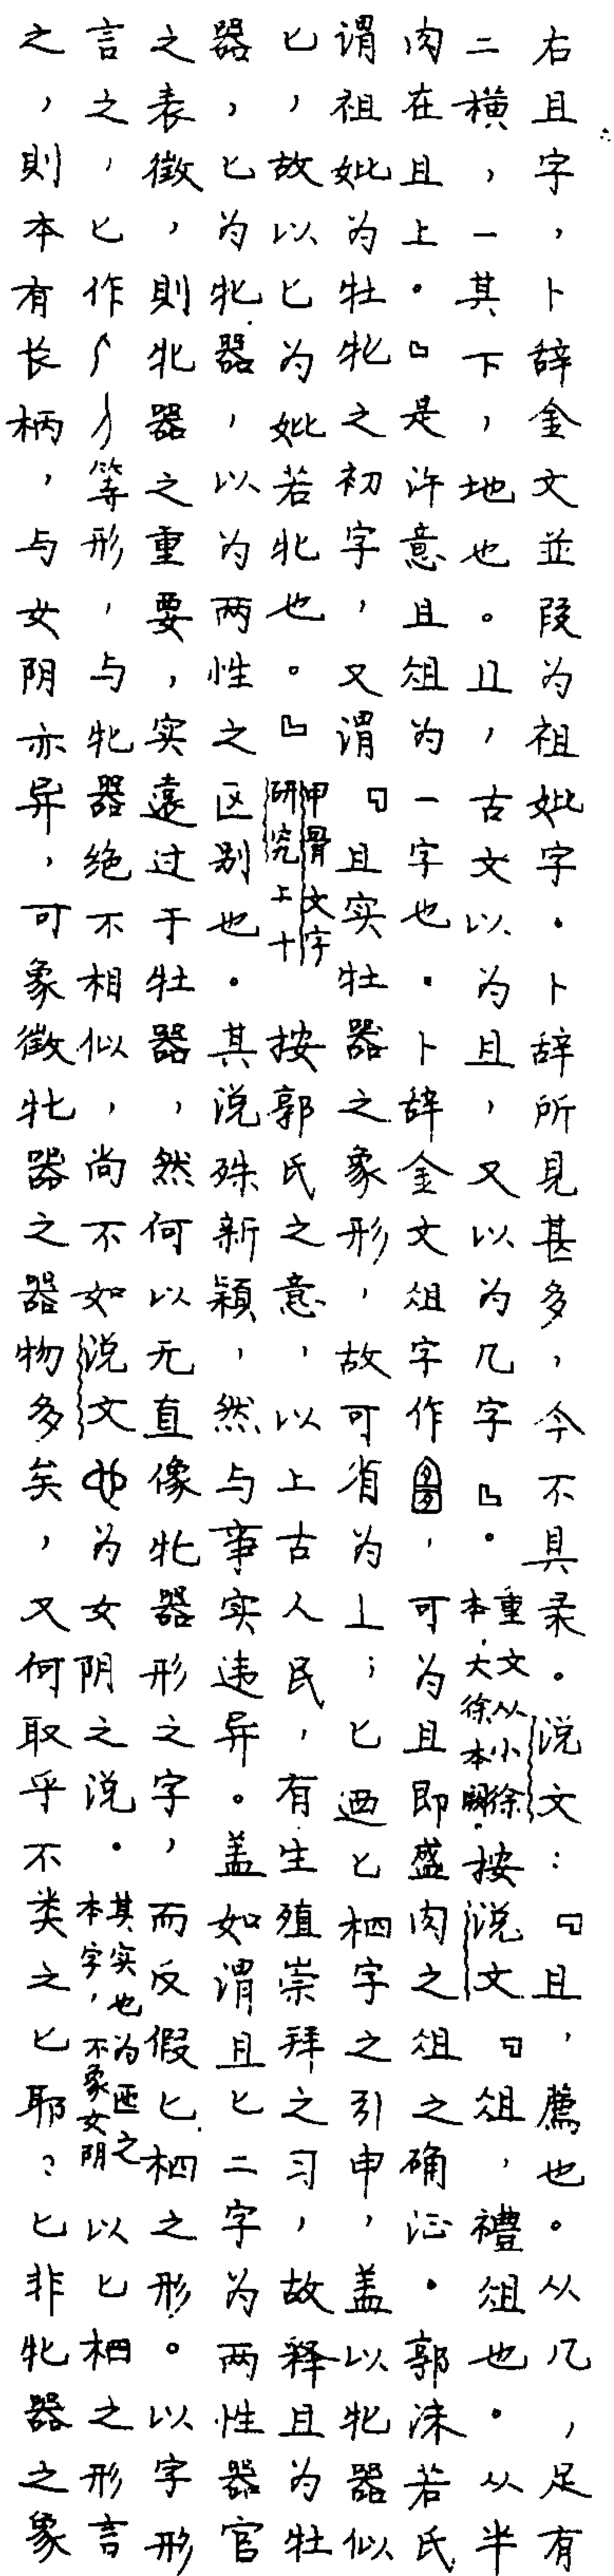 右且字，卜辞金文並叚为祖妣字．卜辞所見甚多，今不具录。说文：『且，薦也。从几，足有
二横，一其下，地也。且，古文以为且，又以为几字』。重文从小徐本，大徐本脱。按说文『俎，禮俎也．从半
肉在且上．』是许意且俎为一字也．卜辞金文俎字作，可为且即盛肉之俎之确证．郭沫若氏
谓祖妣为牡牝之初字，又谓『且实牡器之象形，故可省为丄；匕迺匕柶字之引申，盖以牝器似
匕，故以匕为妣若牝也。』甲骨文字研究上十 按郭氏之意，以上古人民，有生殖崇拜之习，故释且为牡
器，匕为牝器，以为两性之区别也．其说殊新颖，然与事实违异。盖如谓且匕二字为两性器官
之表徵，則牝器之重要，实遠过于牡器，然何以无直像牝器形之字，而反假匕柶之形。以字形
言之，匕作等形，与牝器绝不相似，尚不如说文也为女阴之说．其实也为匜之本字，不象女阴 以匕柶之形言
之，則本有长柄，与女阴亦异，可象徵牝器之器物多矣，又何取乎不类之匕耶？匕非牝器之象